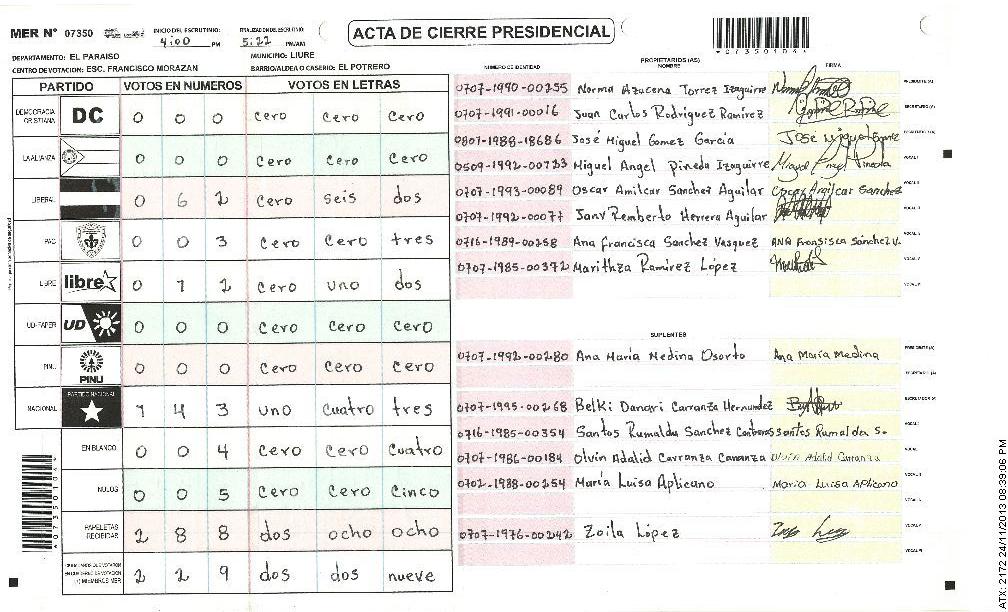 MER N° 07350
INICIO DEL ESCRUTINIO: 4:00 PM
FINALIZACION DEL ESCRUTINIO: 5:22 PM/AM
ACTA DE CIERRE PRESIDENCIAL
*073501041
DEPARTAMENTO: EL PARAISO
MUNICIPIO: LIURE
CENTRO DE VOTACION: ESC. FRANCISCO MORAZAN
BARRIO/ALDEA O CASERIO: EL POTRERO
PARTIDO VOTOS EN NUMEROS VOTOS EN LETRAS
DEMOCRACIA CRISTIANA DC 0 0 0 cero cero cero
LA ALIANZA 0 0 0 cero cero cero
LIBERAL 0 6 2 cero seis dos
PAC 0 0 3 cero cero tres
LIBRE libre 0 1 2 cero uno dos
UD-FAPER UD 0 0 0 cero cero cero
PINU PINU 0 0 0 cero cero cero
NACIONAL PARTIDO NACIONAL 1 4 3 uno cuatro tres
EN BLANCO 0 0 4 cero cero cuatro
NULOS 0 0 5 cero cero cinco
PAPELETAS RECIBIDAS 2 8 8 dos ocho ocho
MIEMBROS MER 2 2 9 dos dos nueve
NÚMERO DE IDENTIDAD PROPIETARIOS (AS) NOMBRE FIRMA
0707-1990-00255 Norma Azucena Torrez Izaguirre PRESIDENTE (A)
0707-1991-00016 Juan Carlos Rodriguez Ramírez SECRETARIO (A)
0807-1988-18686 José Miguel Gomez García José Miguel Gomez ESCRUTADOR (A)
0509-1992-00723 Miguel Angel Pineda Izaguirre Miguel Angel Pineda VOCAL I
0707-1993-00089 Oscar Amilcar Sanchez Aguilar Oscar Amilcar Sanchez VOCAL II
0707-1992-00077 Jany Remberto Herrera Aguilar
0716-1989-00258 Ana Francisca Sanchez Vasquez ANA Fransisca Sánchez V.
0707-1985-00372 Marithza Ramírez López
SUPLENTES
0707-1992-00280 Ana María Medina Osorto Ana María Medina PRESIDENTE (A)
SECRETARIO (A)
0707-1995-00268 Belki Danari Carranza Hernandez ESCRUTADOR (A)
0716-1985-00354 Santos Rumaldu Sanchez Santos Rumalda S. VOCAL I
0707-1986-00184 Olvin Adalid Carranza Carranza Olvin Adalid Carranza
0702-1988-00254 María Luisa Aplicano María Luisa Aplicano
0707-1976-00242 Zoila López
ATX: 2172 24/11/2013 08:39:06 PM